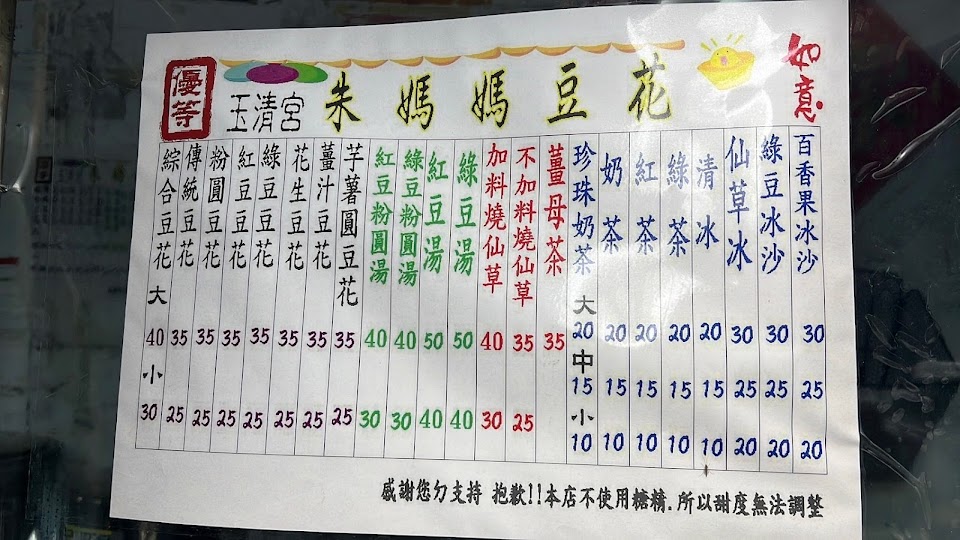 優等
玉清宮 朱媽媽豆花
如意
綜合豆花 大 40 小 30
傳統豆花 35 25
粉圓豆花 35 25
紅豆豆花 35 25
綠豆豆花 35 25
花生豆花 35 25
薑汁豆花 35 25
芋薯圓豆花 35 25
紅豆粉圓湯 40 30
綠豆粉圓湯 40 30
紅豆湯 50 40
綠豆湯 50 40
加料燒仙草 40 30
不加料燒仙草 35 25
薑母茶 35
珍珠奶茶 大 20 中 15 小 10
奶茶 20 15 10
紅茶 20 15 10
綠茶 20 15 10
清冰 20 15 10
仙草冰 30 25 20
綠豆冰沙 30 25 20
百香果冰沙 30 25 20
感謝您ㄉ支持 抱歉!!本店不使用糖精.所以甜度無法調整